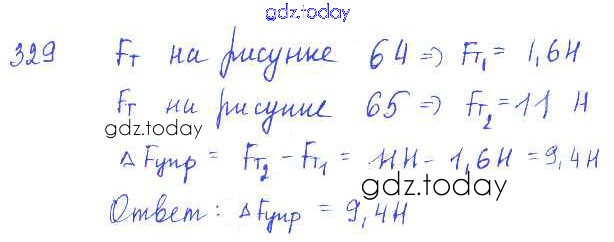 gdz.today
329 Fт на рисунке 64 => Fт₁ = 1,6Н
Fт на рисунке 65 => Fт₂ = 11 Н
gdz.today
ΔFупр = Fт₂ - Fт₁ = 11Н - 1,6Н = 9,4Н
gdz.today
Ответ: ΔFупр = 9,4Н